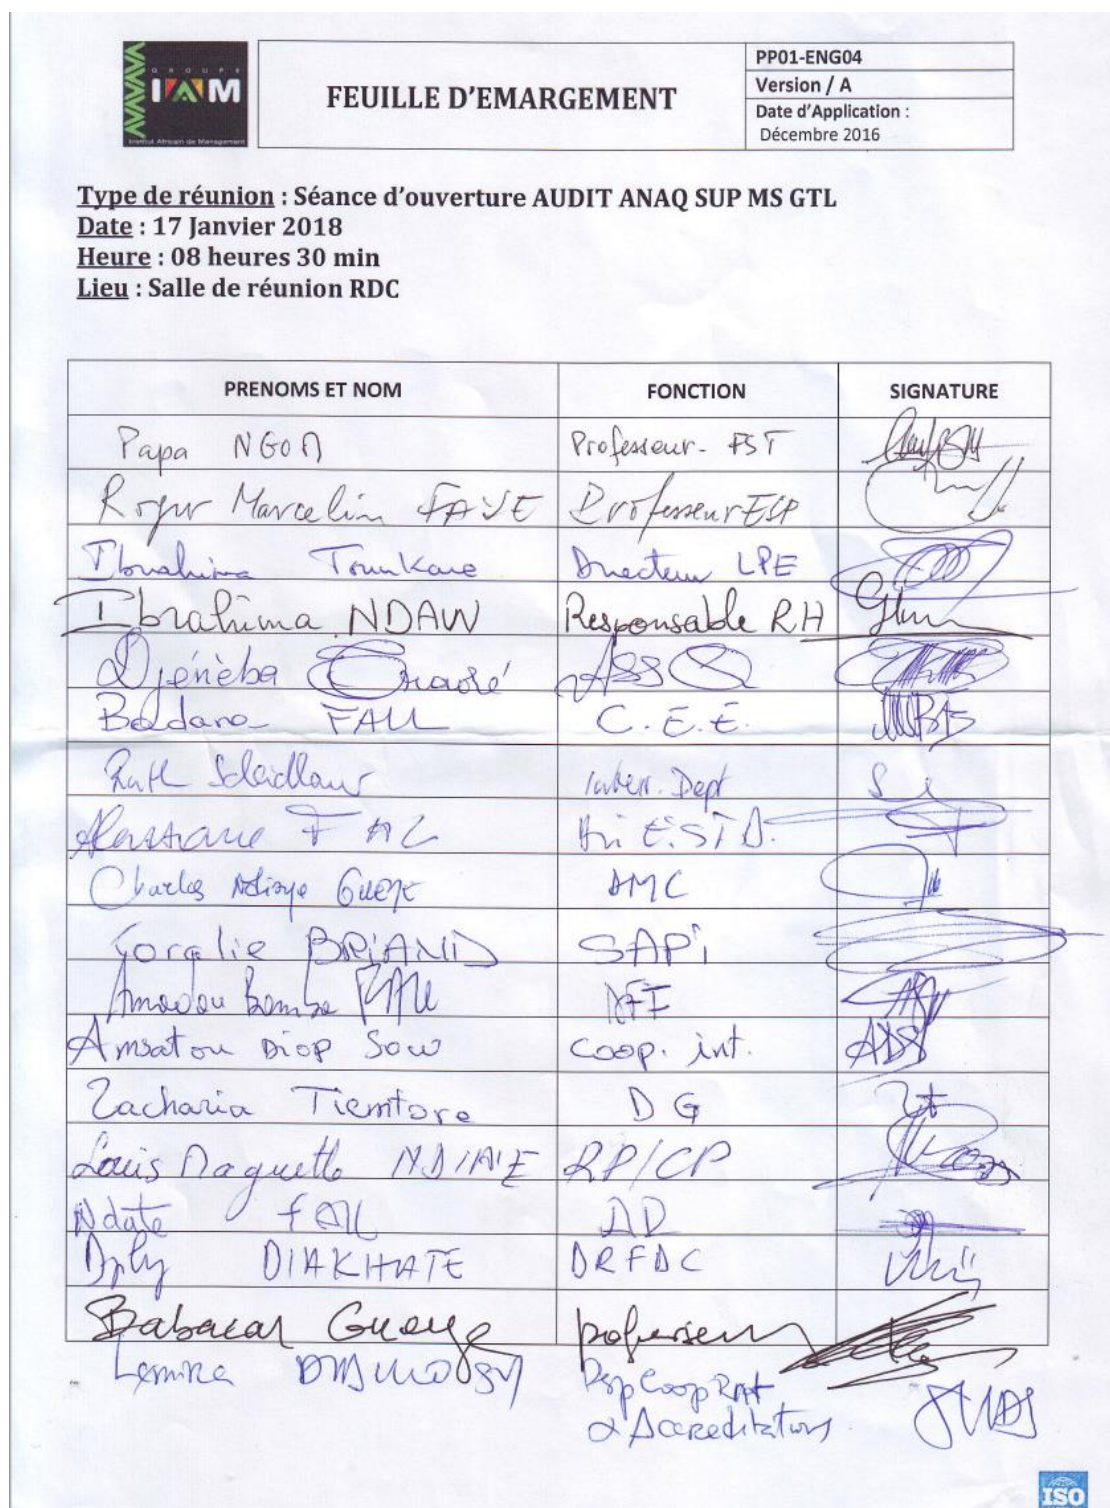 GROUPE
IAM
Institut Africain de Management
FEUILLE D'EMARGEMENT
PP01-ENG04
Version / A
Date d'Application :
Décembre 2016
Type de réunion : Séance d'ouverture AUDIT ANAQ SUP MS GTL
Date : 17 Janvier 2018
Heure : 08 heures 30 min
Lieu : Salle de réunion RDC
PRENOMS ET NOM FONCTION SIGNATURE
Papa NGOM Professeur - FST
Roger Marcelin FAYE Professeur ESP
Ibrahima Tounkara Directeur LPE
Ibrahima NDAW Responsable RH
Djénéba Traoré
FALL C.E.E.
Dept
Alassane FALL
Charles Ndiaye GUEYE AMC
Coralie BRIAND SAPi
Amadou Bamba FALL
Amsatou DIOP Sow Coop. int.
Zacharia Tiemtore DG
Louis NDIAYE RP/CP
Ndate FALL AD
DIAKHATE DRFDC
Babacar Gueye professeur
Rsp Coop
& Accreditations
ISO